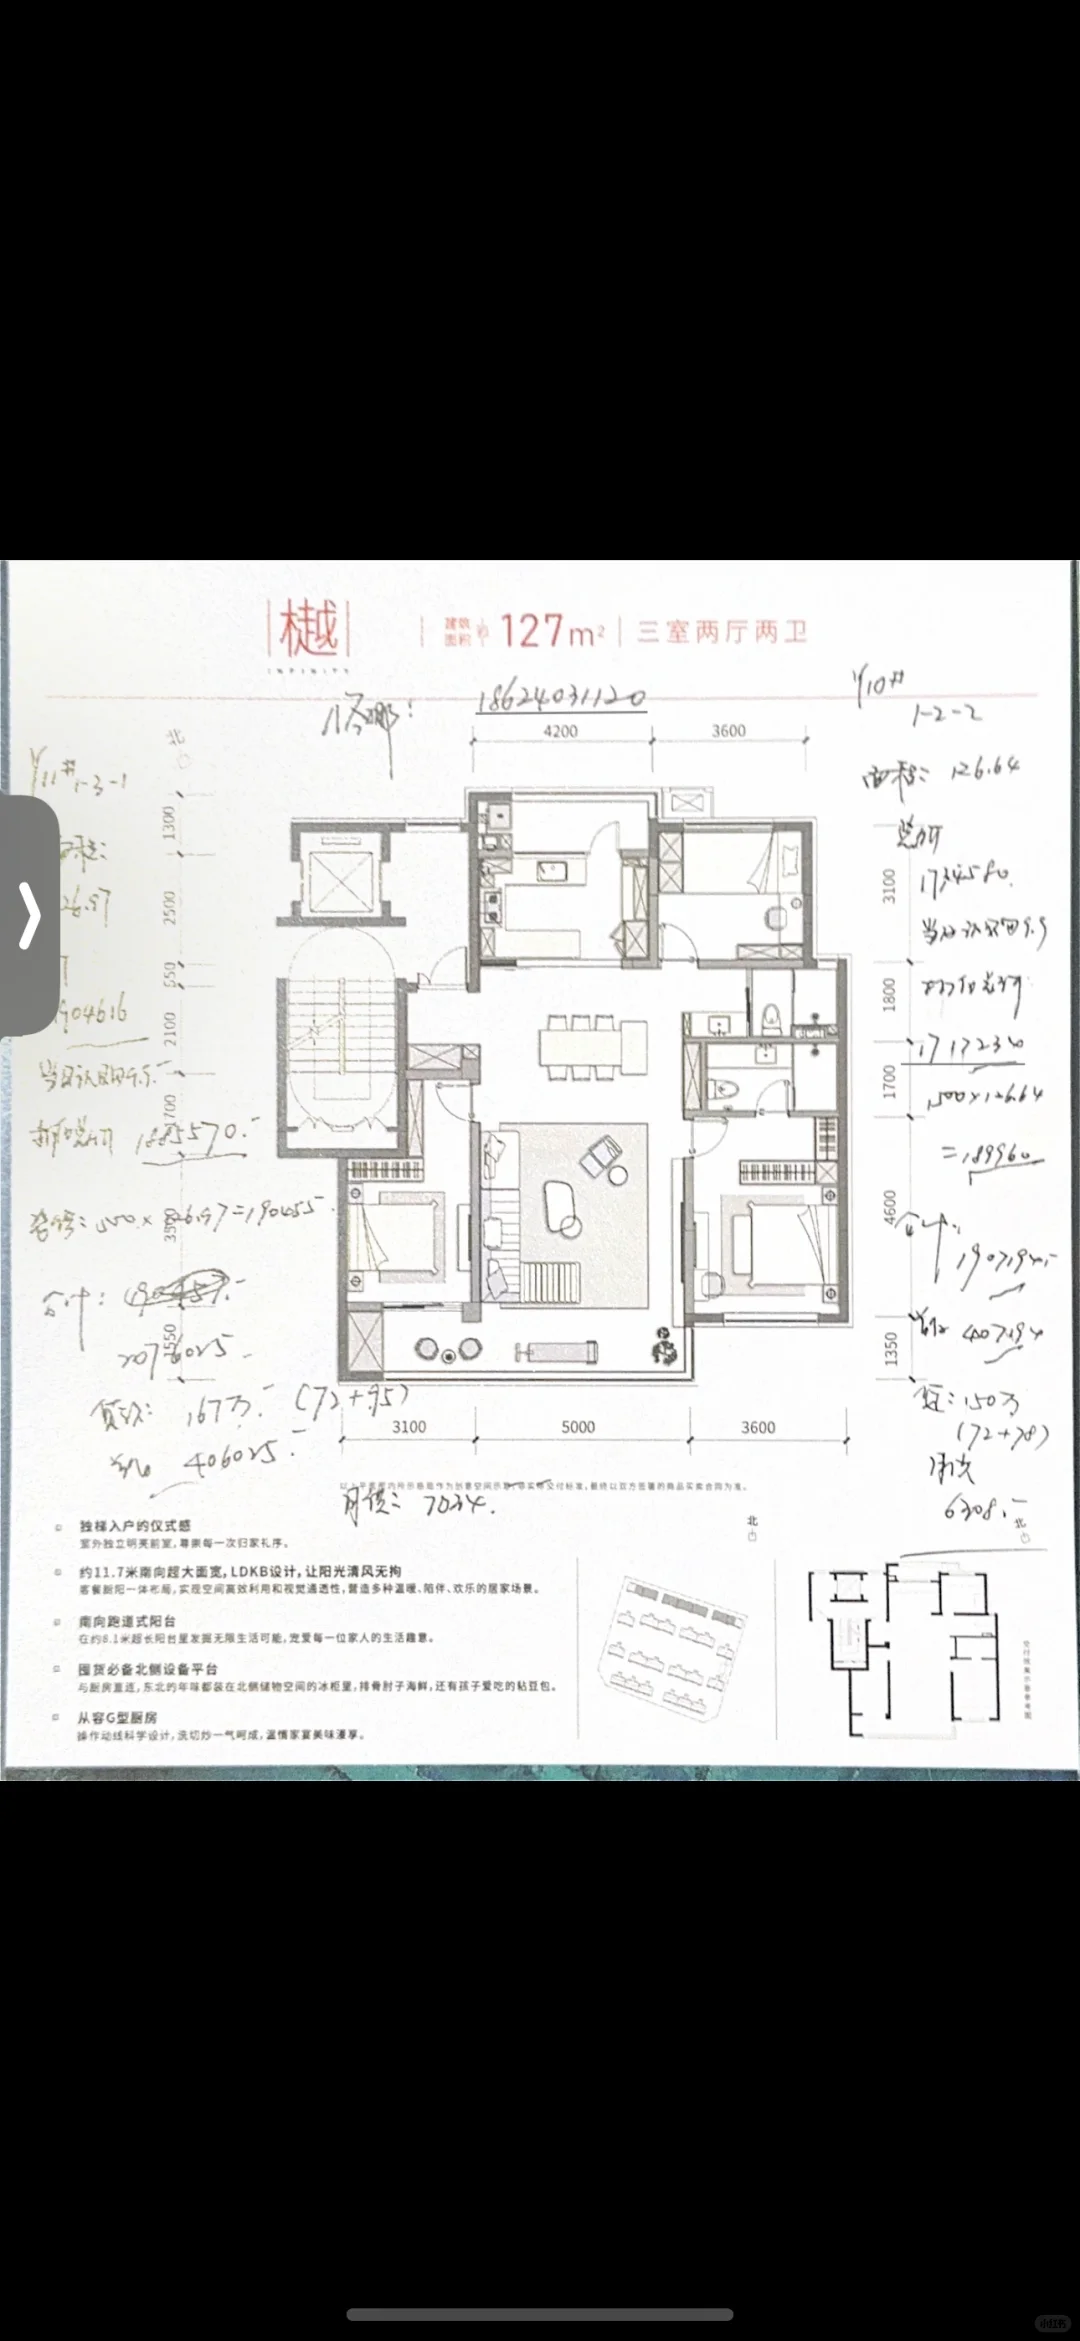 樾
INFINITY
建筑面积 约 127m² 三室两厅两卫
18624031120
Y10#
1-2-2
4200
3600
面积: 126.64
总价
1734580.
当日认购9.9
折后总价
1717234
1500×126.64
=189960
合计:
1907194.-
首付 407194
贷: 150万
(72+78)
月供
6308.-
Y11# 1-3-1
26.97
904616
当日认购9.9.
折后总价 1885570.-
1500×126.97=190455
合计:
2076025.
贷款: 167万.- (72+95)
首付 406025.-
月供: 7034.
北
1300
2500
550
2100
1550
3100
1800
1700
4600
1350
3100
5000
3600
独梯入户的仪式感
室外独立明亮前室,尊崇每一次归家礼序。
约11.7米南向超大面宽,LDKB设计,让阳光清风无拘
客餐厨阳一体布局,实现空间高效利用和视觉通透性,营造多种温暖、陪伴、欢乐的居家场景。
南向跑道式阳台
在约8.1米超长阳台里发掘无限生活可能,宠爱每一位家人的生活趣意。
囤货必备北侧设备平台
与厨房直连,东北的年味都装在北侧储物空间的冰柜里,排骨肘子海鲜,还有孩子爱吃的粘豆包。
从容G型厨房
操作动线科学设计,洗切炒一气呵成,温情家宴美味漫享。
北
北